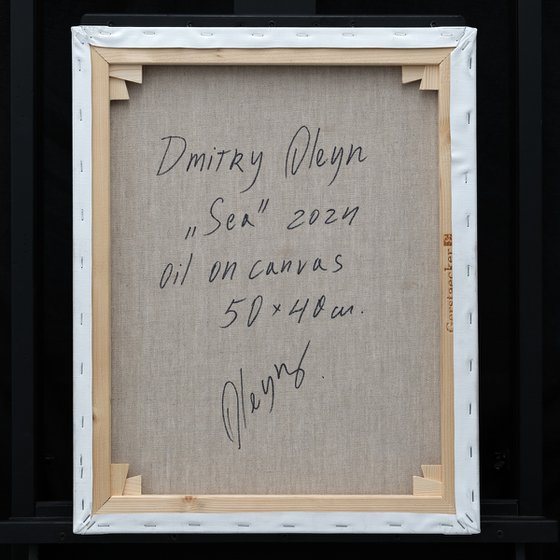 Dmitry Oleyn
„Sea” 2024
oil on canvas
50 x 40 cm.
Oleyn
Gerstaecker